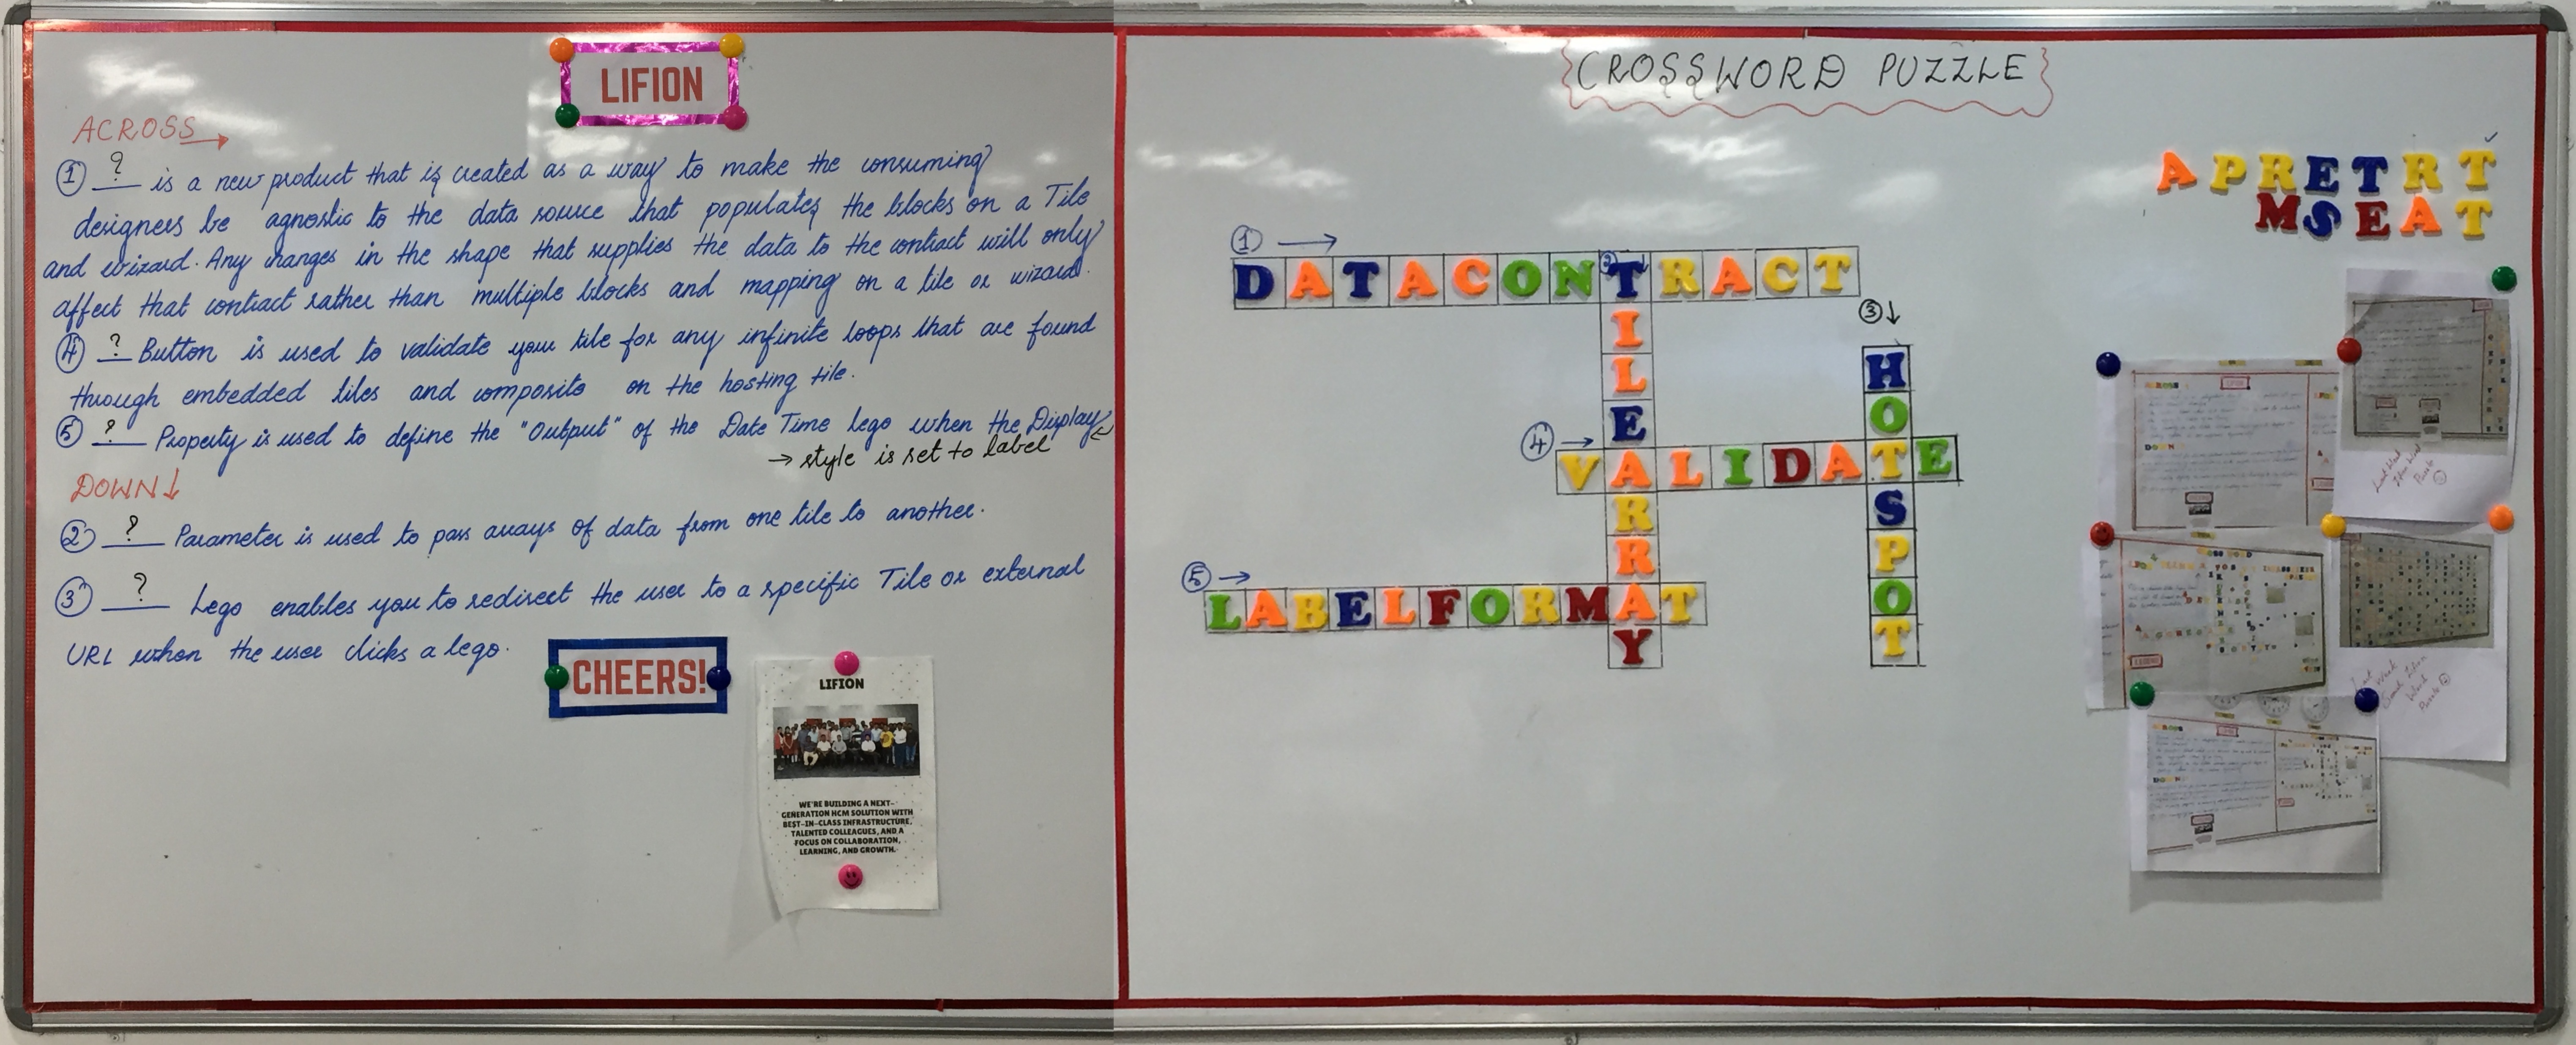 LIFION
ACROSS →
① ? is a new product that is created as a way to make the consuming
designers be agnostic to the data source that populates the blocks on a Tile
and wizard. Any changes in the shape that supplies the data to the contract will only
affect that contract rather than multiple blocks and mapping on a tile or wizard.
④ ? Button is used to validate your tile for any infinite loops that are found
through embedded tiles and composite on the hosting tile.
⑤ ? Property is used to define the "Output" of the Date Time lego when the Display
→ style is set to label
DOWN ↓
② ? Parameter is used to pass arrays of data from one tile to another.
③ ? Lego enables you to redirect the user to a specific Tile or external
URL when the user clicks a lego.
CHEERS!
LIFION
WE'RE BUILDING A NEXT-
GENERATION HCM SOLUTION WITH
BEST-IN-CLASS INFRASTRUCTURE,
TALENTED COLLEAGUES, AND A
FOCUS ON COLLABORATION,
LEARNING, AND GROWTH.
CROSSWORD PUZZLE
A P R E T R T
M S E A T
① →
DATACONTRACT
② ↓
TILEARRAY
③ ↓
HOTSPOT
④ →
VALIDATE
⑤ →
LABELFORMAT